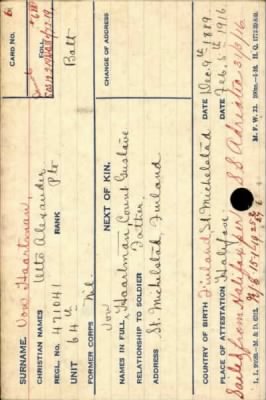 CARD NO.
FOLL
SURNAME. Von Haartman,
CHRISTIAN NAMES Utto Alexander
REGL. NO. 471041 RANK Pte
UNIT 64th Batt
FORMER CORPS Nil
NEXT OF KIN.
CHANGE OF ADDRESS
NAMES IN FULL, Von Haartman, Count Gustave
RELATIONSHIP TO SOLDIER Father
ADDRESS St. Michelstad, Finland
COUNTRY OF BIRTH Finland, St. Michelstad DATE Dec. 9th 1889
PLACE OF ATTESTATION Halifax DATE Feb. 5th 1916
Sailed from Halifax per S.S. Adriatic 31/3/16
M. F. W. 22.
H. Q.